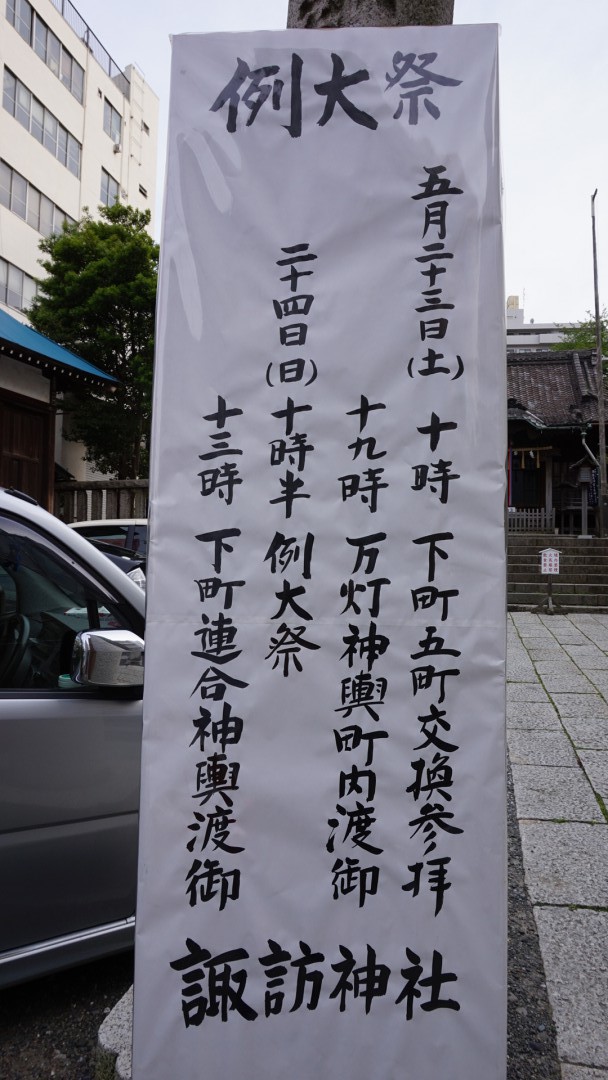 例大祭
五月二十三日(土) 十時 下町五町交換参拝
十九時 万灯神輿町内渡御
二十四日(日) 十時半 例大祭
十三時 下町連合神輿渡御
諏訪神社